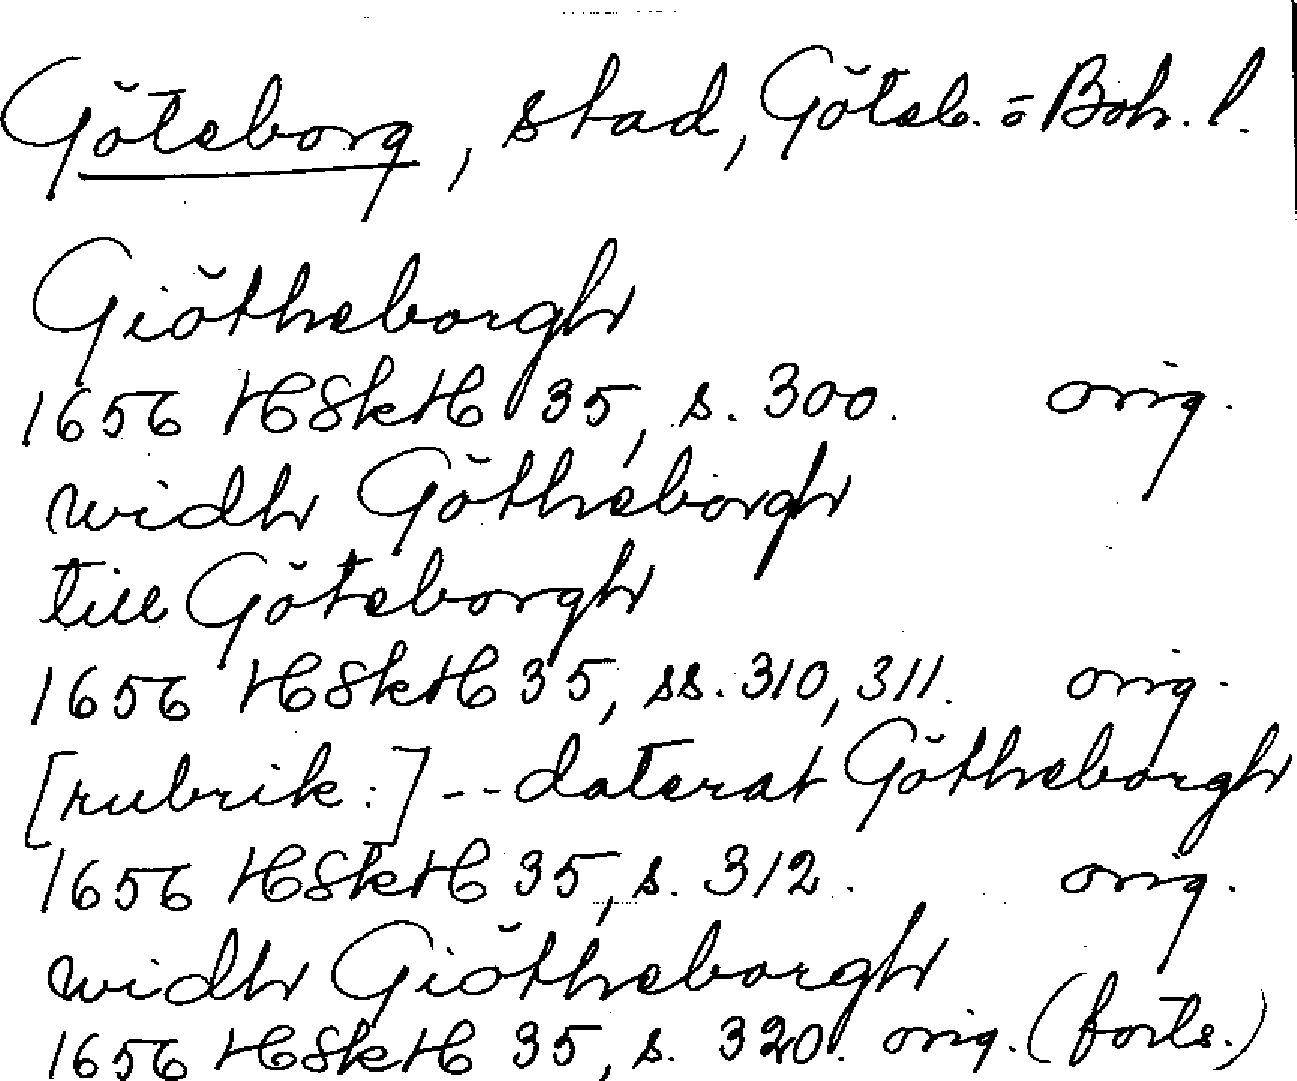 Göteborg, stad, Göteb. o Boh. l.
Giötheborgh
1656 HSkH 35, s. 300. orig.
widh Götheborgh
till Göteborgh
1656 HSkH 35, ss. 310, 311. orig.
[rubrik:] -- daterat Götheborgh
1656 HSkH 35, s. 312. orig.
widh Giötheborgh
1656 HSkH 35, s. 320. orig. (forts.)